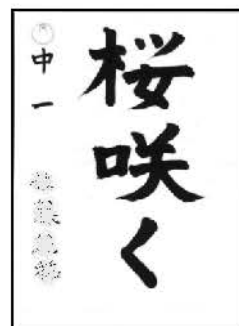 桜咲く
中一